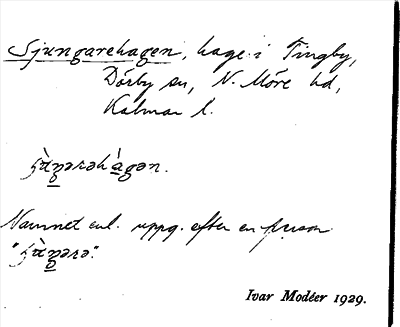 Sjungarehagen, hage i Tingby,
Dörby sn, N. Möre hd,
Kalmar l.
ʃɑ̀ŋərəhàgən.
Namnet enl. uppg. efter en person
"ʃɑ̀ŋərə".
Ivar Modéer 1929.